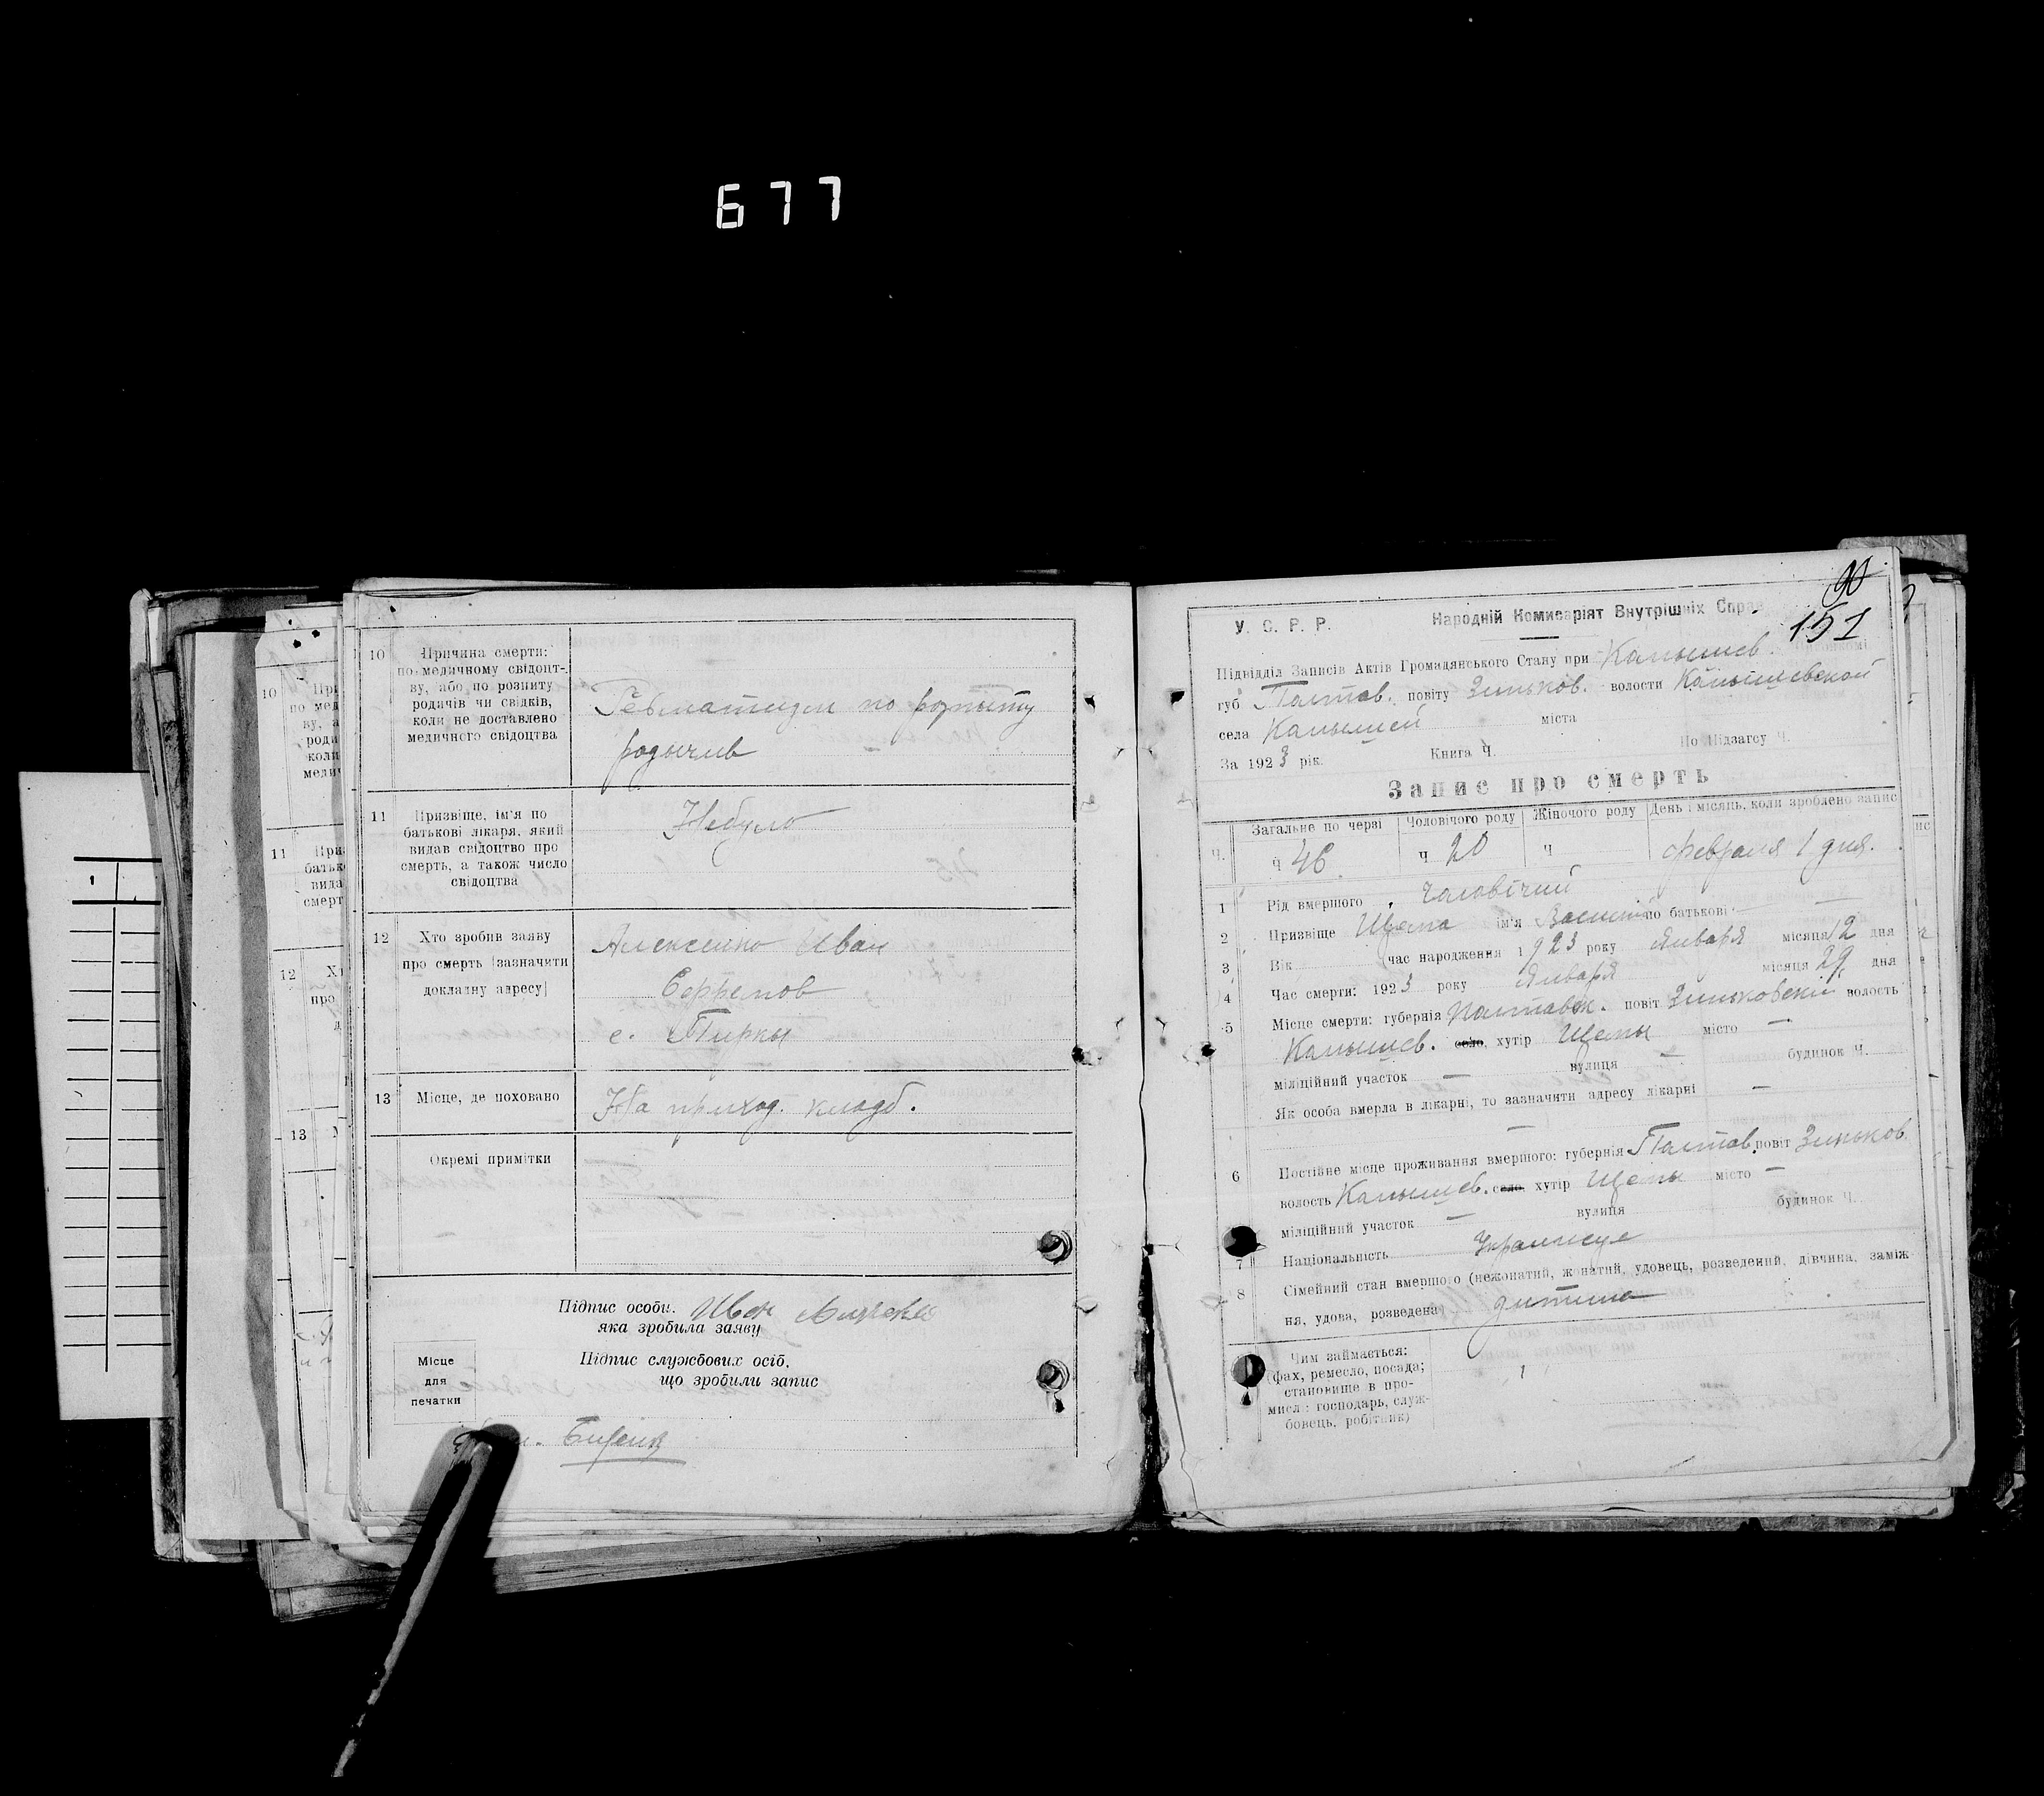 677
10 Причина смерти:
по медичному свідоцт-
ву, або по розпиту
родичів чи свідків,
коли не доставлено
медичного свідоцтва
Ревматизм по розпиту
родичив
11 Призвіще, ім'я по
батькові лікаря, який
видав свідоцтво про
смерть, а також число
свідоцтва
Небуло
12 Хто зробив заяву
про смерть (зазначити
докладну адресу)
Алексенко Иван
Ефремов
с. Пирки
13 Місце, де поховано
На приход. кладб.
Окремі примітки
Підпис особи, Иван
яка зробила заяву
Підпис службових осіб,
що зробили запис
Місце
для
печатки
10
11
12
13
90
151
У. С. Р. Р. Народній Комисаріят Внутрішніх Справ
Підвідділ Записів Актів Громадянського Стану при Камышев.
губ Полтав. повіту Зиньков. волости Камышевской
села Камышей міста
За 1923 рік. Книга Ч. По Підзагсу Ч.
Запис про смерть
Ч. Загальне по черзі Чоловічого роду Жіночого роду День і місяць, коли зроблено запис
ч 46 ч 20 ч февраля 1 дня.
1 Рід вмершого чоловічий
2 Призвіще Щепа ім'я по батькові —
3 Вік час народження 1923 року Января місяця 12 дня
4 Час смерти: 1923 року Января місяця 29 дня
5 Місце смерти: губернія Полтавск. повіт Зиньковский волость
Камышев. село, хутір Щепы місто —
міліційний участок — вулиця — будинок Ч.
Як особа вмерла в лікарні, то зазначити адресу лікарні —
—
6 Постійне місце проживання вмершого: губернія Полтав. повіт Зиньков.
волость Камышев. село, хутір Щепы місто —
міліційний участок — вулиця будинок Ч.
7 Національність Українець
8 Сімейний стан вмершого (нежонатий, жонатий, удовець, розведений, дівчина, заміж-
ня, удова, розведена) дитина
Чим займається:
(фах, ремесло, посада;
становище в про-
мислі: господарь, служ-
бовець, робітник)